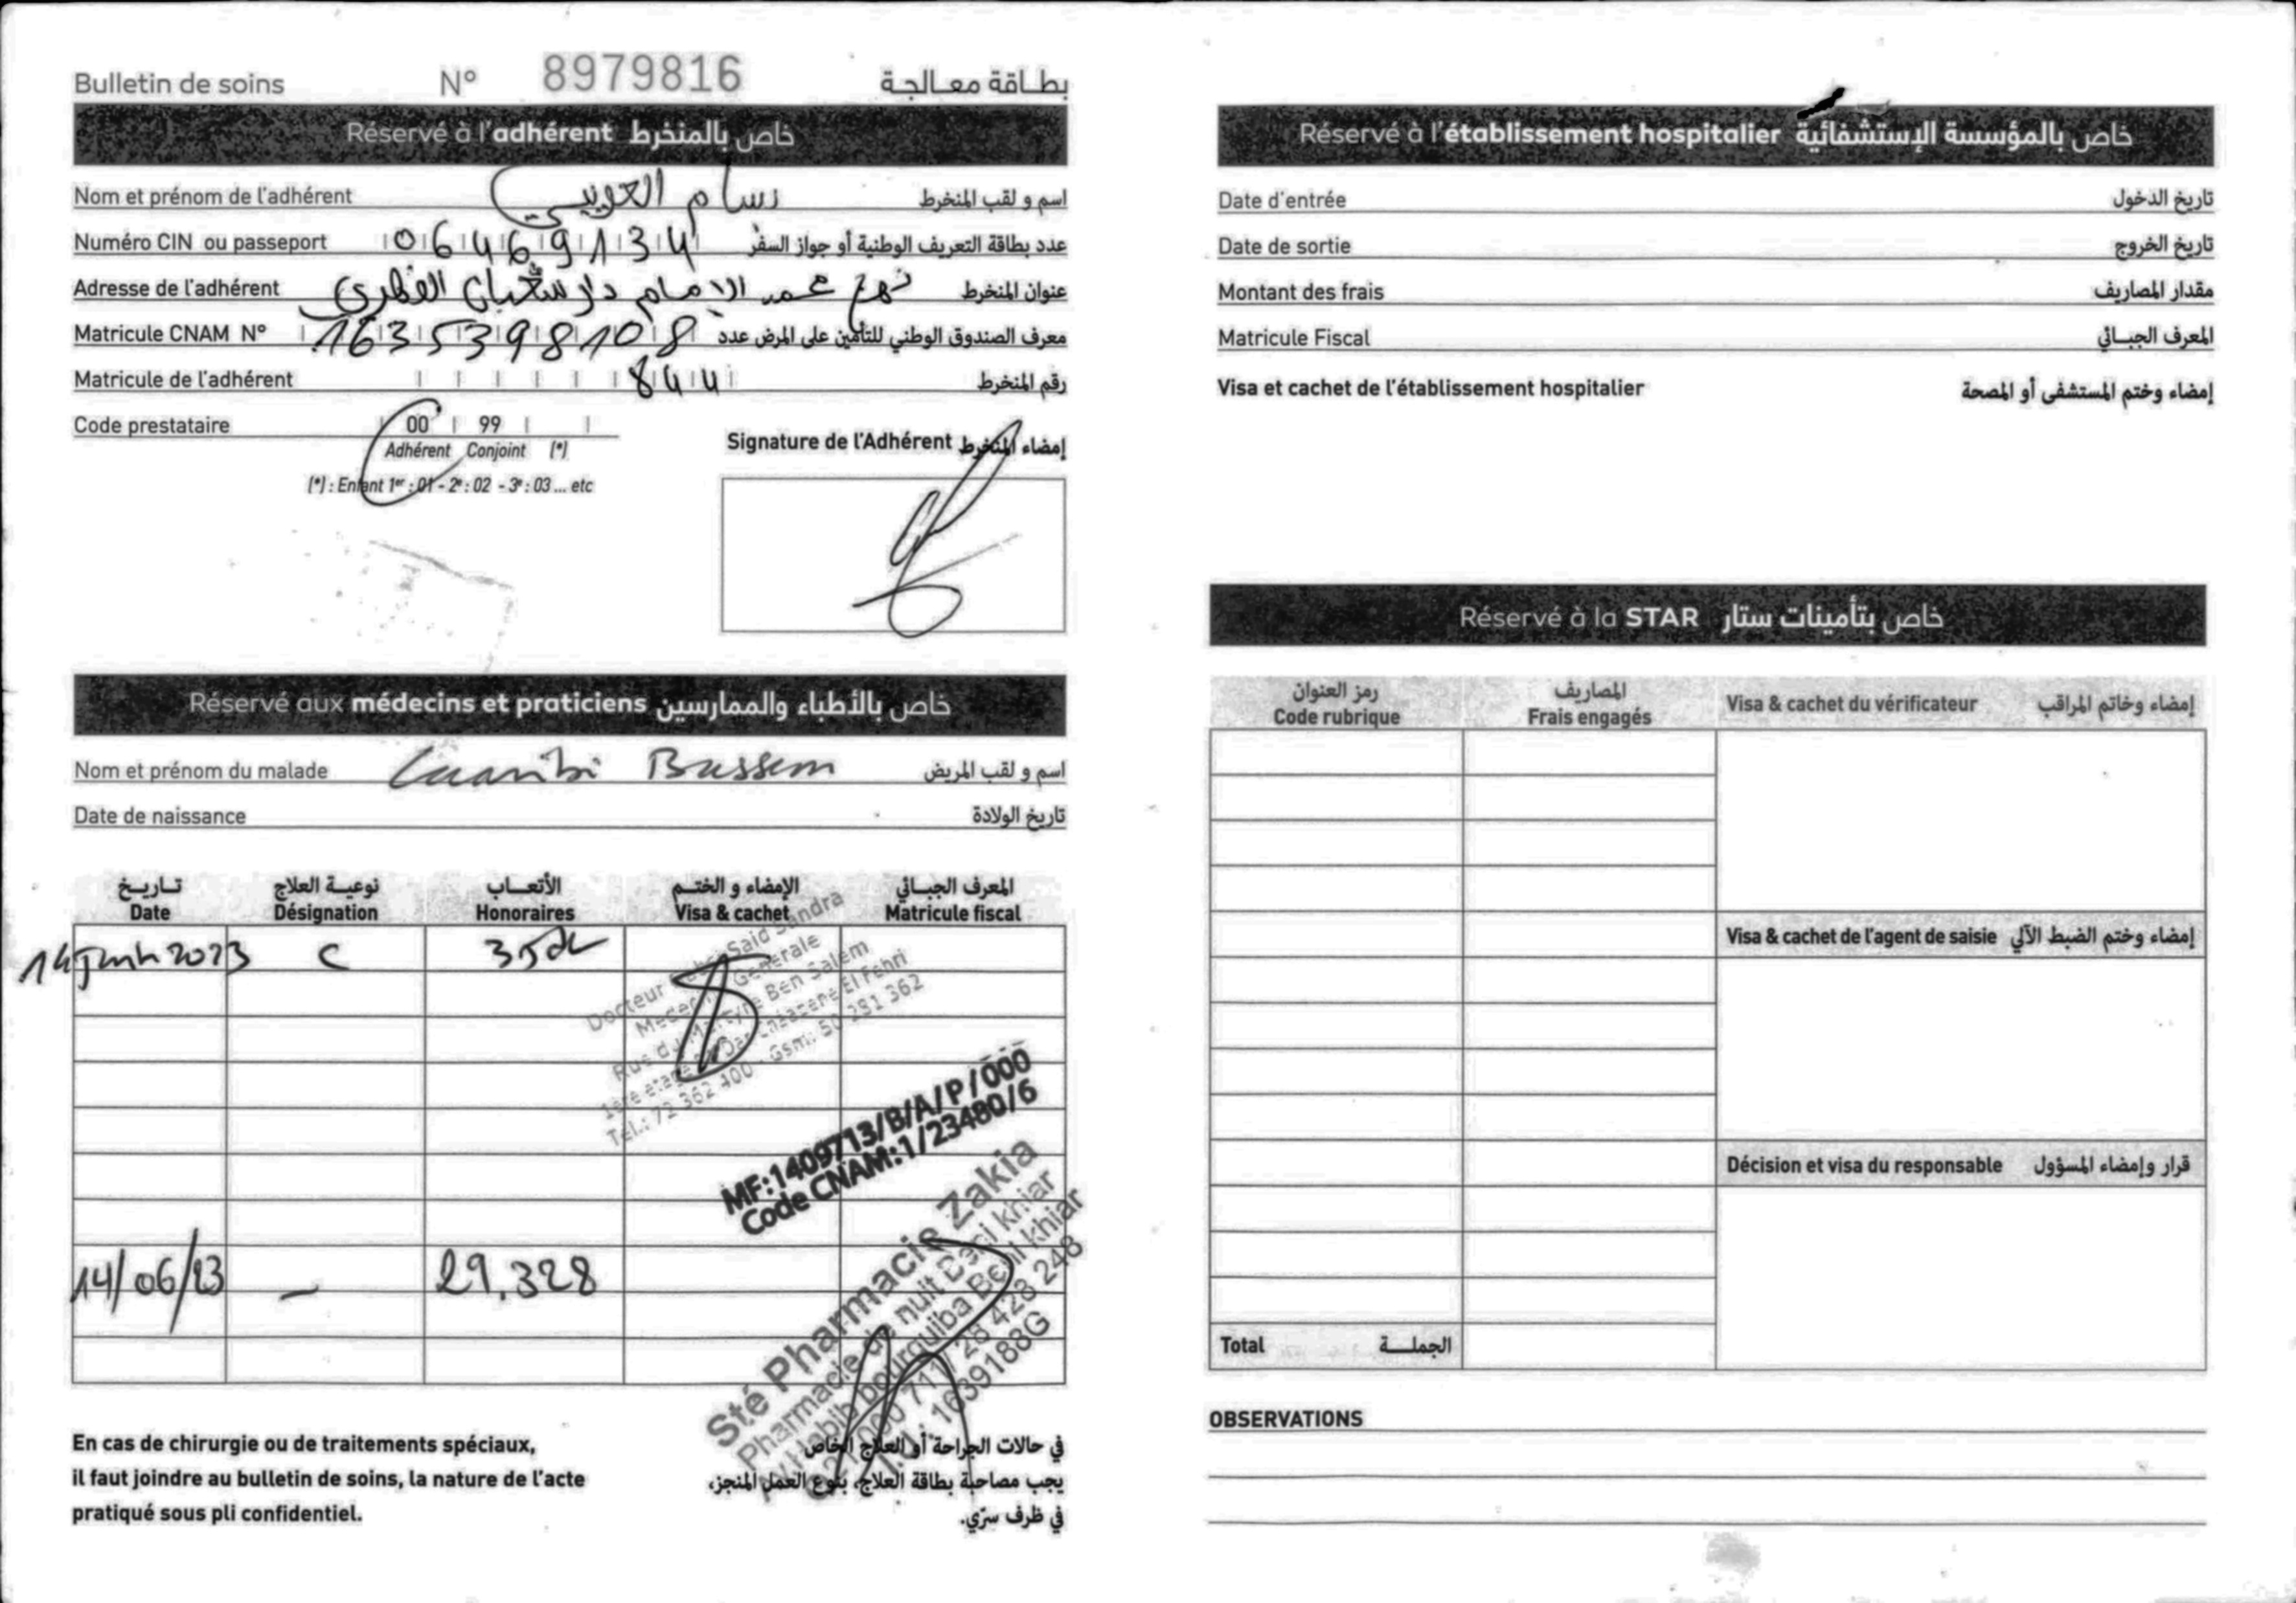 Bulletin de soins N° 8979816 بطاقة معالجة
Réservé à l'adhérent خاص بالمنخرط
Nom et prénom de l'adhérent بسام العريبي اسم و لقب المنخرط
Numéro CIN ou passeport 06469134 عدد بطاقة التعريف الوطنية أو جواز السفر
Adresse de l'adhérent نهج عمر الإمام دار شعبان الفهري عنوان المنخرط
Matricule CNAM N° 1635398108 معرف الصندوق الوطني للتأمين على المرض عدد
Matricule de l'adhérent 844 رقم المنخرط
Code prestataire 00 99
Adhérent Conjoint (*)
(*) : Enfant 1er : 01 - 2e : 02 - 3e : 03 ... etc
Signature de l'Adhérent إمضاء المنخرط
Réservé aux médecins et praticiens خاص بالأطباء والممارسين
Nom et prénom du malade Laaribi Bassem اسم و لقب المريض
Date de naissance تاريخ الولادة
تاريخ نوعية العلاج الأتعاب الإمضاء و الختم المعرف الجبائي
Date Désignation Honoraires Visa & cachet Matricule fiscal
14 juin 2023 C 35dt
Docteur Said Sandra
Médecine Générale
Rue du Martyre Ben Salem
1ère étage Dar Chaabane El Fehri
Tél.: 72 362 400 - Gsm: 50 231 362
MF:1409713/B/A/P/000
Code CNAM:1/23480/6
14/06/23 — 29.328
Sté Pharmacie Zakia
Pharmacie de nuit Beni khiar
Av Habib bourguiba Beni khiar
711/ 28 423 248
1639188G
En cas de chirurgie ou de traitements spéciaux,
il faut joindre au bulletin de soins, la nature de l'acte
pratiqué sous pli confidentiel.
في حالات الجراحة أو العلاج الخاص
يجب مصاحبة بطاقة العلاج، بنوع العمل المنجز،
في ظرف سرّي.
Réservé à l'établissement hospitalier خاص بالمؤسسة الإستشفائية
Date d'entrée تاريخ الدخول
Date de sortie تاريخ الخروج
Montant des frais مقدار المصاريف
Matricule Fiscal المعرف الجبائي
Visa et cachet de l'établissement hospitalier إمضاء وختم المستشفى أو المصحة
Réservé à la STAR خاص بتأمينات ستار
رمز العنوان المصاريف
Code rubrique Frais engagés Visa & cachet du vérificateur إمضاء وخاتم المراقب
Visa & cachet de l'agent de saisie إمضاء وختم الضبط الآلي
Décision et visa du responsable قرار وإمضاء المسؤول
Total الجملة
OBSERVATIONS